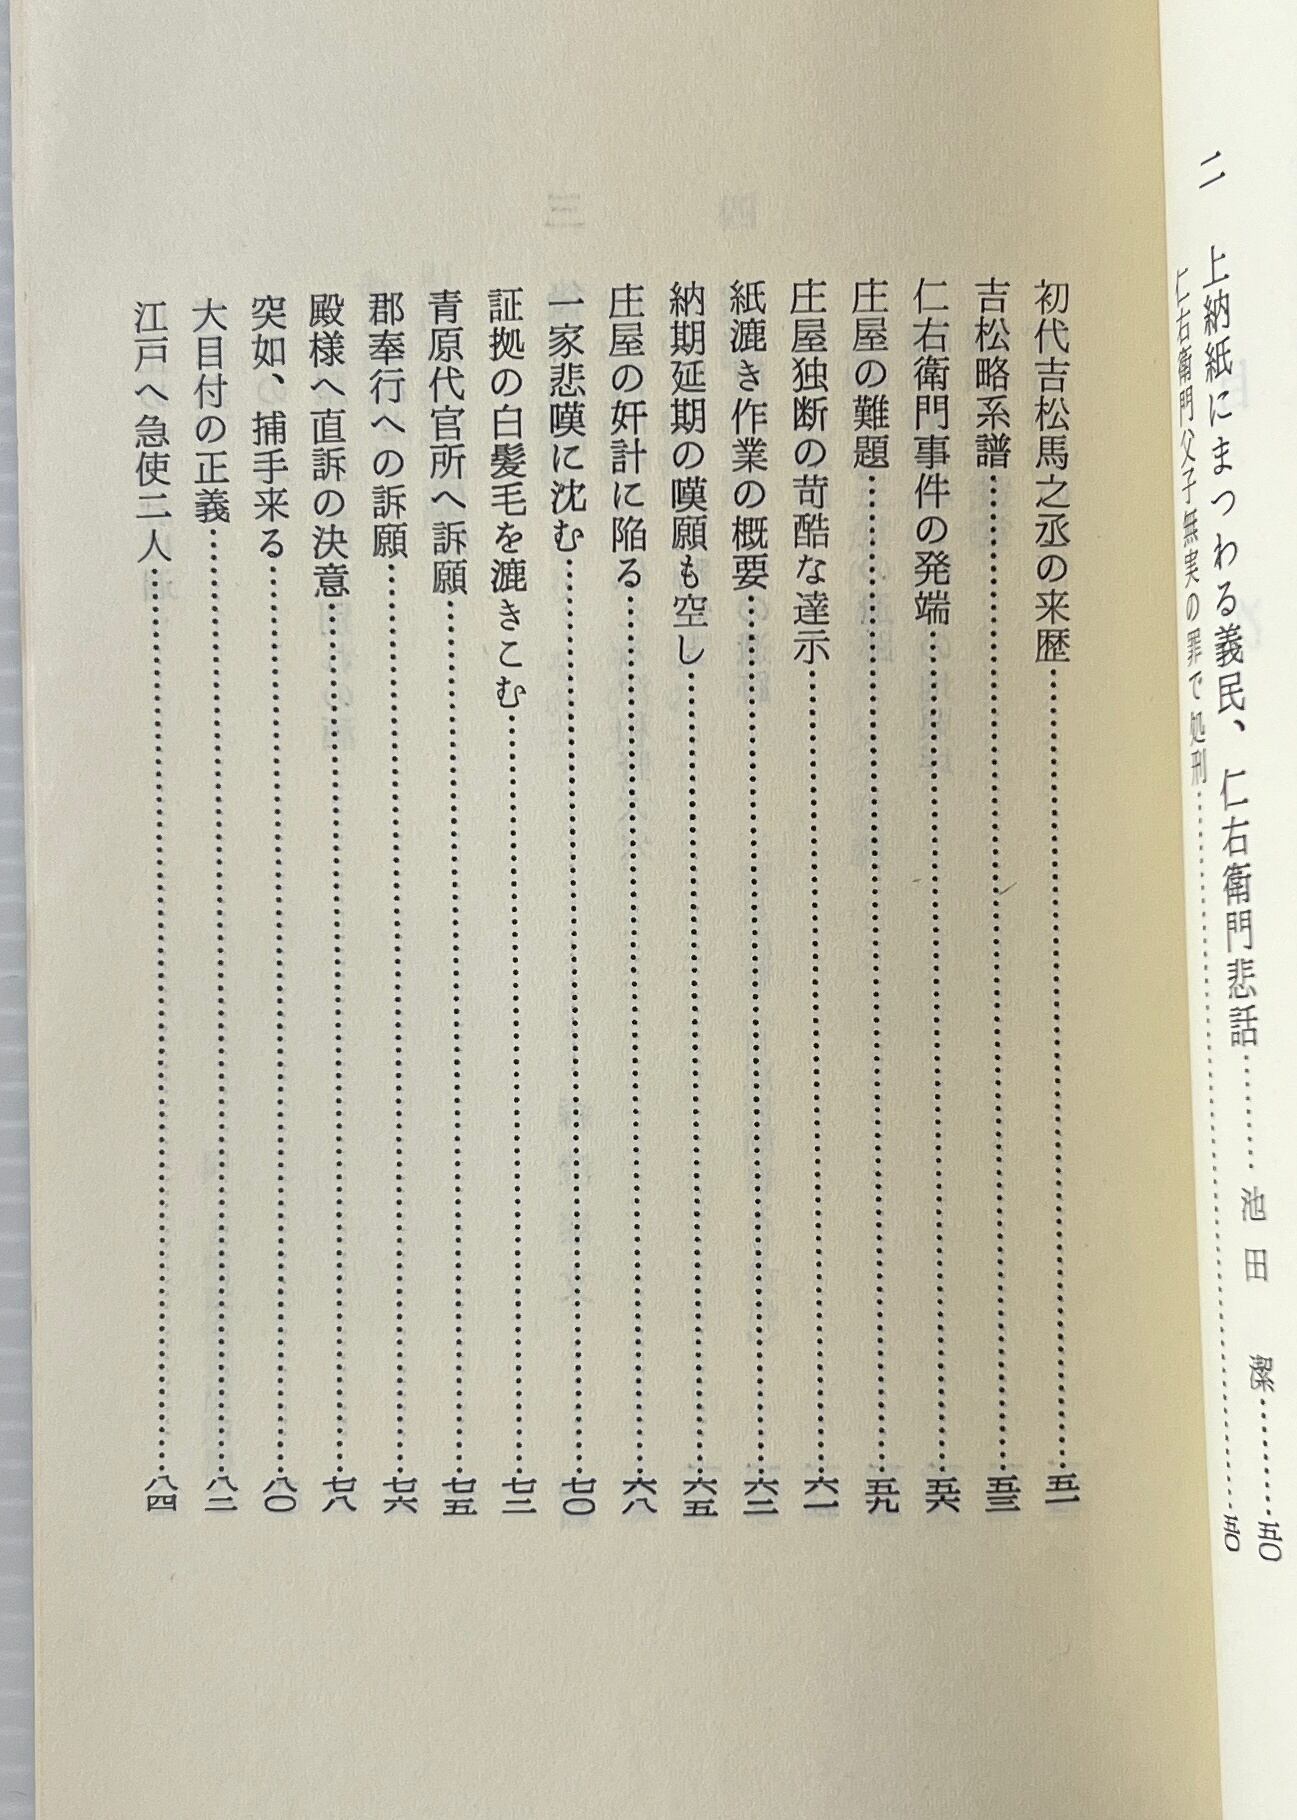 二　上納紙にまつわる義民、仁右衛門悲話………池田　…………五〇
仁右衛門父子無実の罪で処刑…………五〇
初代吉松馬之丞の来歴…………五一
吉松略系譜…………五三
仁右衛門事件の発端…………五六
庄屋の難題…………五九
庄屋独断の苛酷な達示…………六一
紙漉き作業の概要…………六二
納期延期の嘆願も空し…………六五
庄屋の奸計に陥る…………六八
一家悲嘆に沈む…………七〇
証拠の白髪毛を漉きこむ…………七二
青原代官所へ訴願…………七五
郡奉行への訴願…………七六
殿様へ直訴の決意…………七八
突如、捕手来る…………八〇
大目付の正義…………八二
江戸へ急使二人…………八四